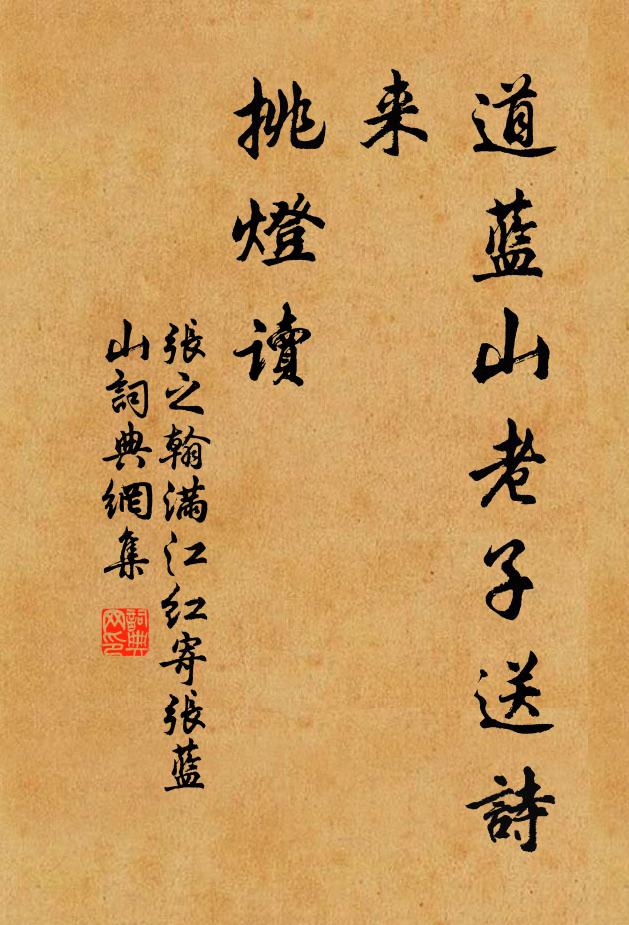 道蓝山老子送詩
来
挑燈讀
張之翰满江红寄張蓝
山詞典網集
詞典网印